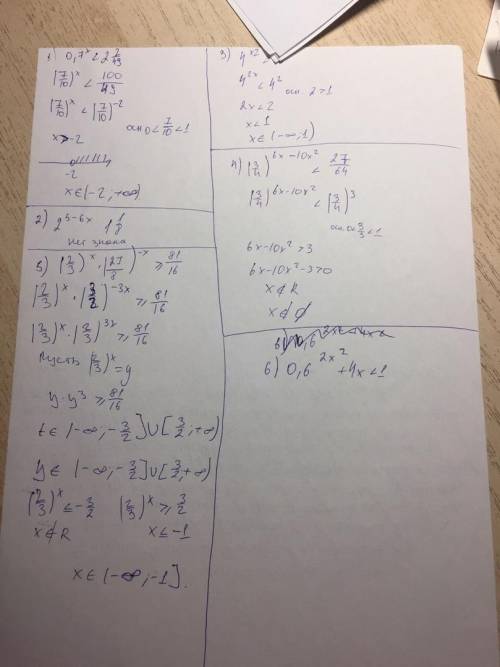 1) 0,7^x < 2 2/49
(7/10)^x < 100/49
(7/10)^x < (7/10)^-2
осн 0 < 7/10 < 1
x > -2
-2
x ∈ (-2, +∞)
2) 2^5-6x 1 1/8
нет знака
5) (2/3)^x · (27/8)^-x ≥ 81/16
(2/3)^x · (3/2)^-3x ≥ 81/16
(2/3)^x · (2/3)^3x ≥ 81/16
Пусть (2/3)^x = y
y · y^3 ≥ 81/16
t ∈ (-∞; -3/2] ∪ [3/2; +∞)
y ∈ (-∞; -3/2] ∪ [3/2, +∞)
(2/3)^x ≤ -3/2 (2/3)^x ≥ 3/2
x ∉ R x ≤ -1
x ∈ (-∞; -1].
3) 4^x2
4^2x < 4^2
осн. 2 > 1
2x < 2
x < 1
x ∈ (-∞; 1)
4) (3/4)^6x-10x^2 < 27/64
(3/4)^6x-10x^2 < (3/4)^3
6x-10x^2 > 3
6x-10x^2-3>0
x ∉ R
6) 0,6^2x^2 + 4x < 1